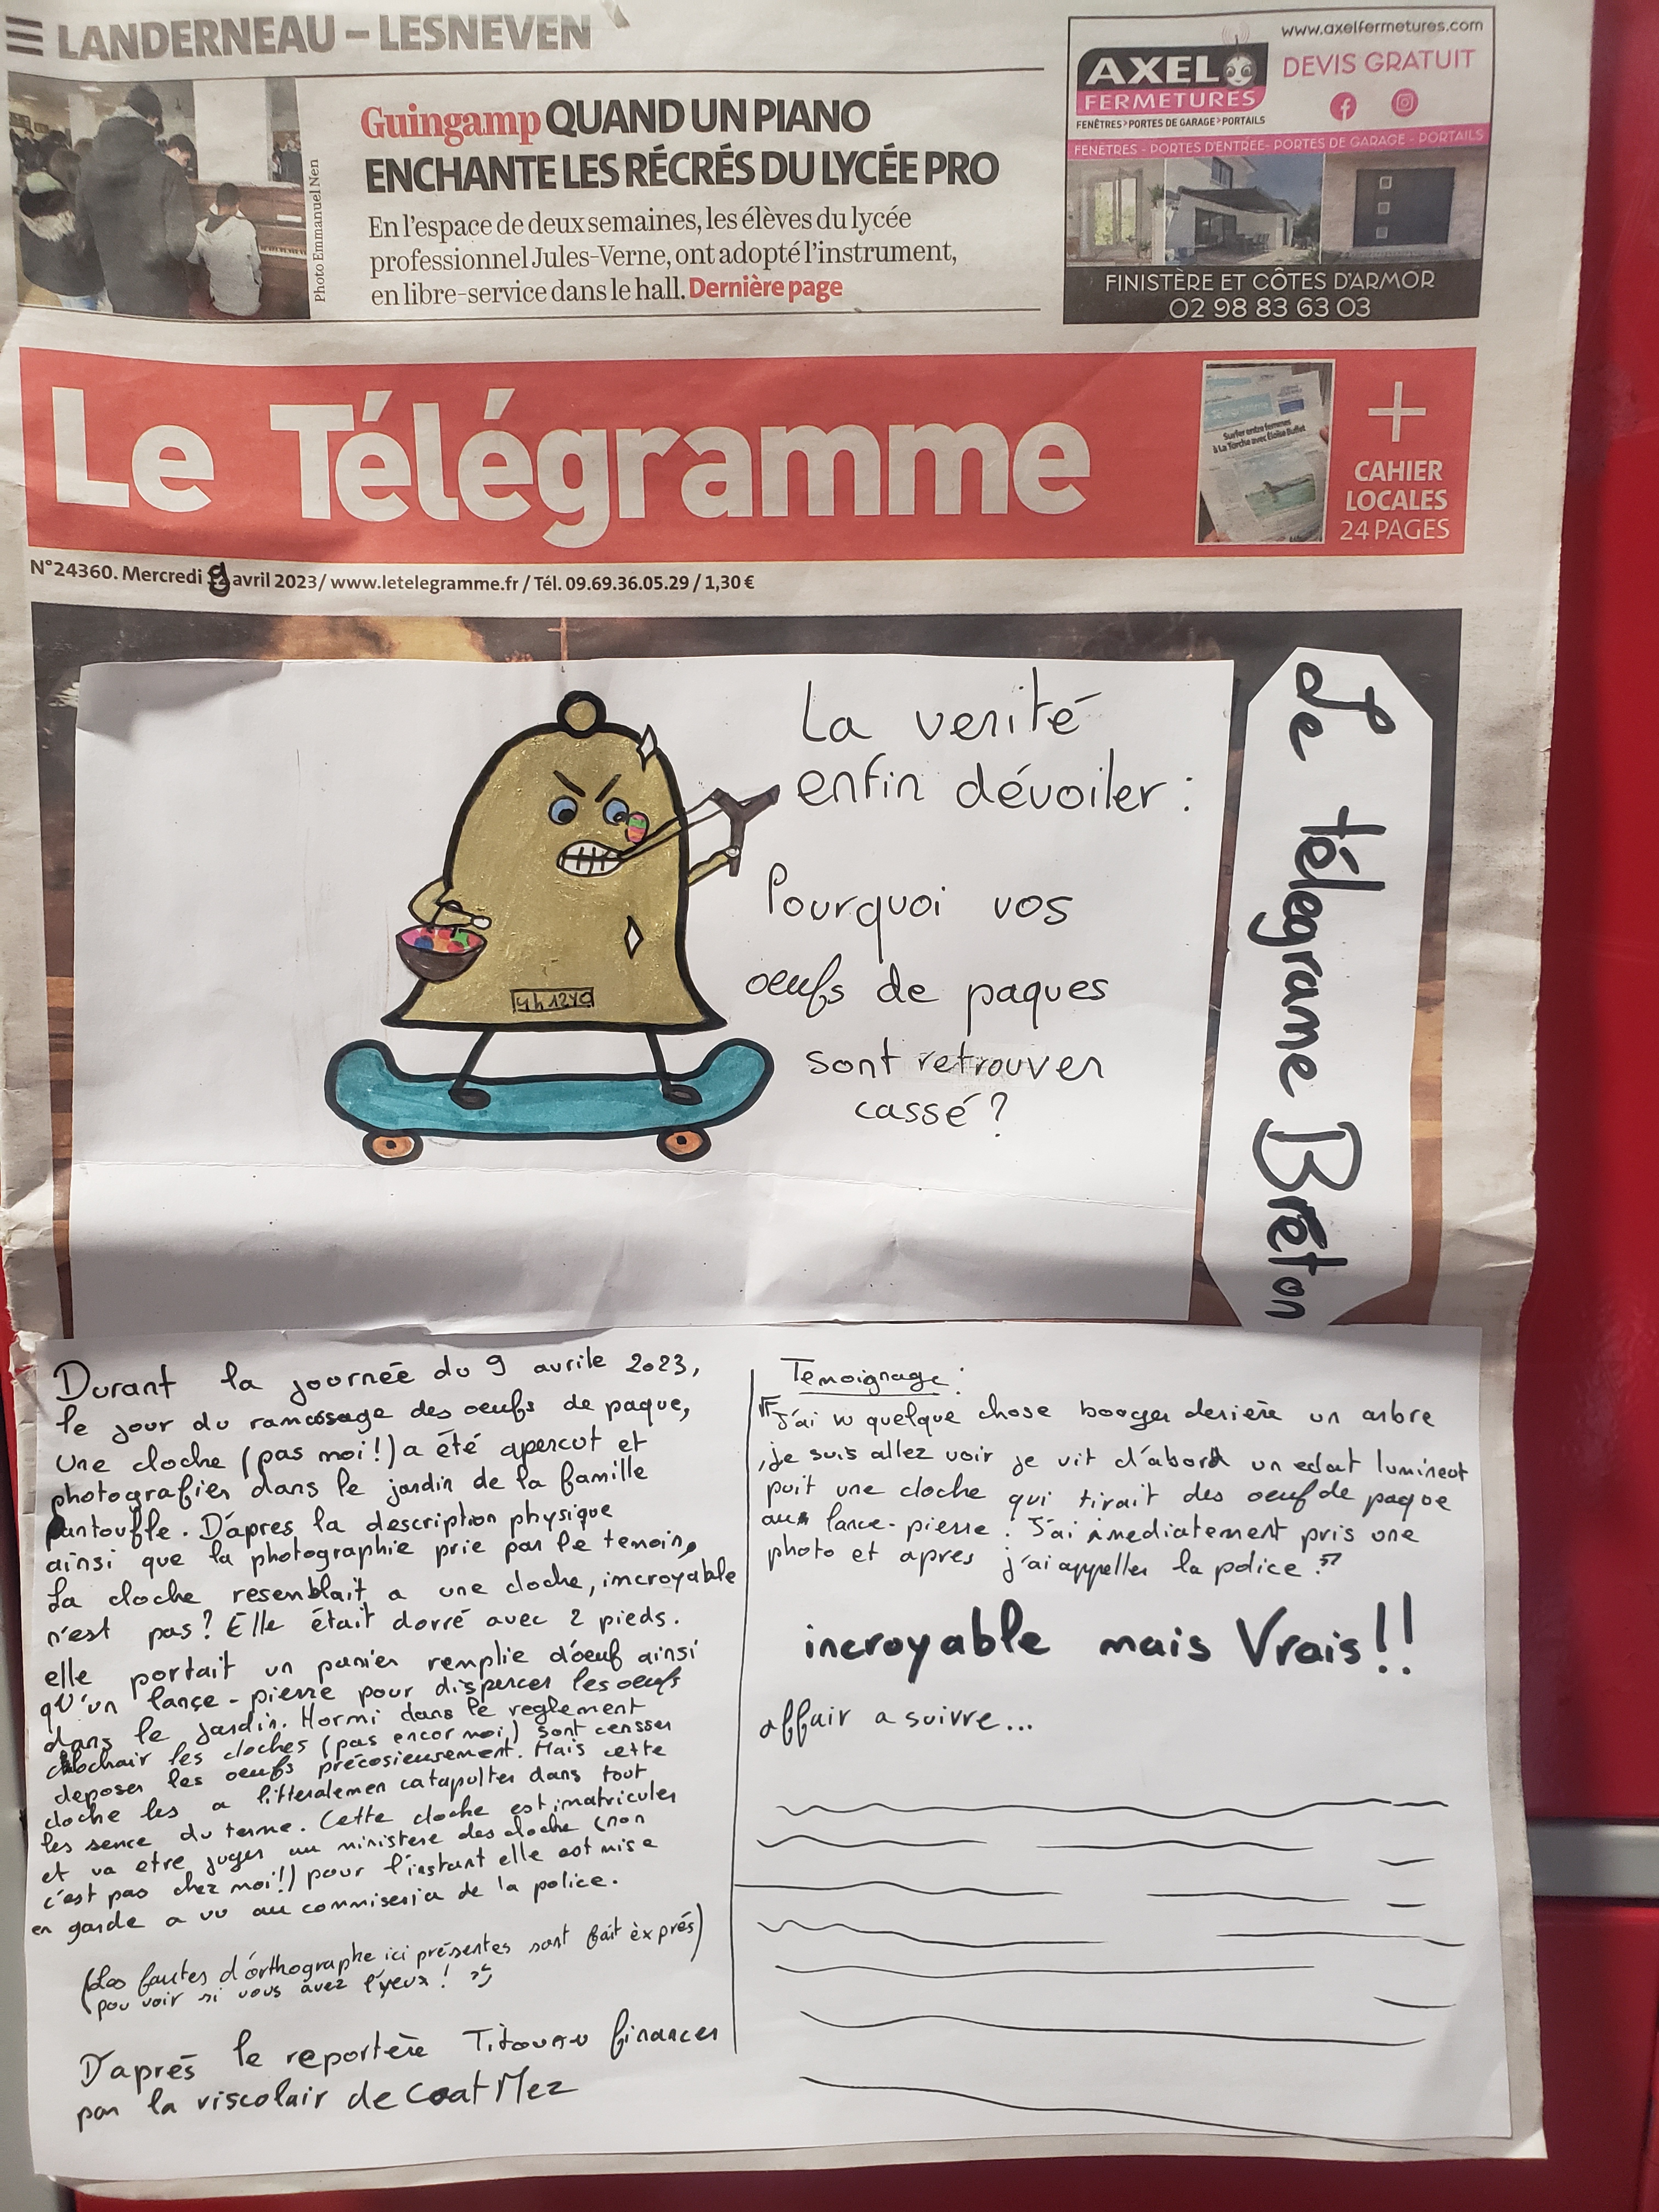 LANDERNEAU – LESNEVEN
Photo Emmanuel Nen
Guingamp QUAND UN PIANO
ENCHANTE LES RÉCRÉS DU LYCÉE PRO
En l'espace de deux semaines, les élèves du lycée
professionnel Jules-Verne, ont adopté l'instrument,
en libre-service dans le hall. Dernière page
www.axelfermetures.com
AXEL
FERMETURES
FENÊTRES>PORTES DE GARAGE>PORTAILS
DEVIS GRATUIT
FENÊTRES - PORTES D'ENTRÉE- PORTES DE GARAGE - PORTAILS
FINISTÈRE ET CÔTES D'ARMOR
02 98 83 63 03
Le Télégramme
Surfer entre femmes
à La Torche avec
+
CAHIER
LOCALES
24 PAGES
N°24360. Mercredi 9 avril 2023/ www.letelegramme.fr / Tél. 09.69.36.05.29 / 1,30 €
La verité
enfin dévoiler :
Pourquoi vos
oeufs de paques
sont retrouver
cassé ?
Le télégrame Brêton
Durant la journée du 9 avrile 2023,
le jour du ramassage des oeufs de paque,
une cloche (pas moi!) a été apercut et
photografier dans le jardin de la famille
pantouffle. D'apres la description physique
ainsi que la photographie prie par le temoin,
La cloche resemblait a une cloche, incroyable
n'est pas? Elle était dorré avec 2 pieds.
elle portait un panier remplie d'oeuf ainsi
qu'un lançe-pierre pour disperces les oeufs
dans le jardin. Hormi dans le reglement
clochair les cloches (pas encor moi) sont censser
deposer les oeufs précosieusement. Mais cette
cloche les a litteralemen catapulter dans tout
les sence du terme. Cette cloche est imatriculer
et va etre juger au ministere des cloche (non
c'est pas chez moi!!) pour l'instant elle est mise
en garde a vu au commiseria de la police.
(Les fautes d'orthographe ici présentes sont fait èxprés)
(pou voir si vous avez l'yeux !
D'aprés le reportère Titouan financer
par la viscolair de Coat Mez
Temoignage :
"J'ai vu quelque chose booger deriére un arbre
,je suis allez voir je vit d'abord un eclat lumineot
puit une cloche qui tirait des oeuf de paque
au lance-pierre. J'ai imediatement pris une
photo et apres j'ai appeller la police."
incroyable mais Vrais!!
affair a suivre...